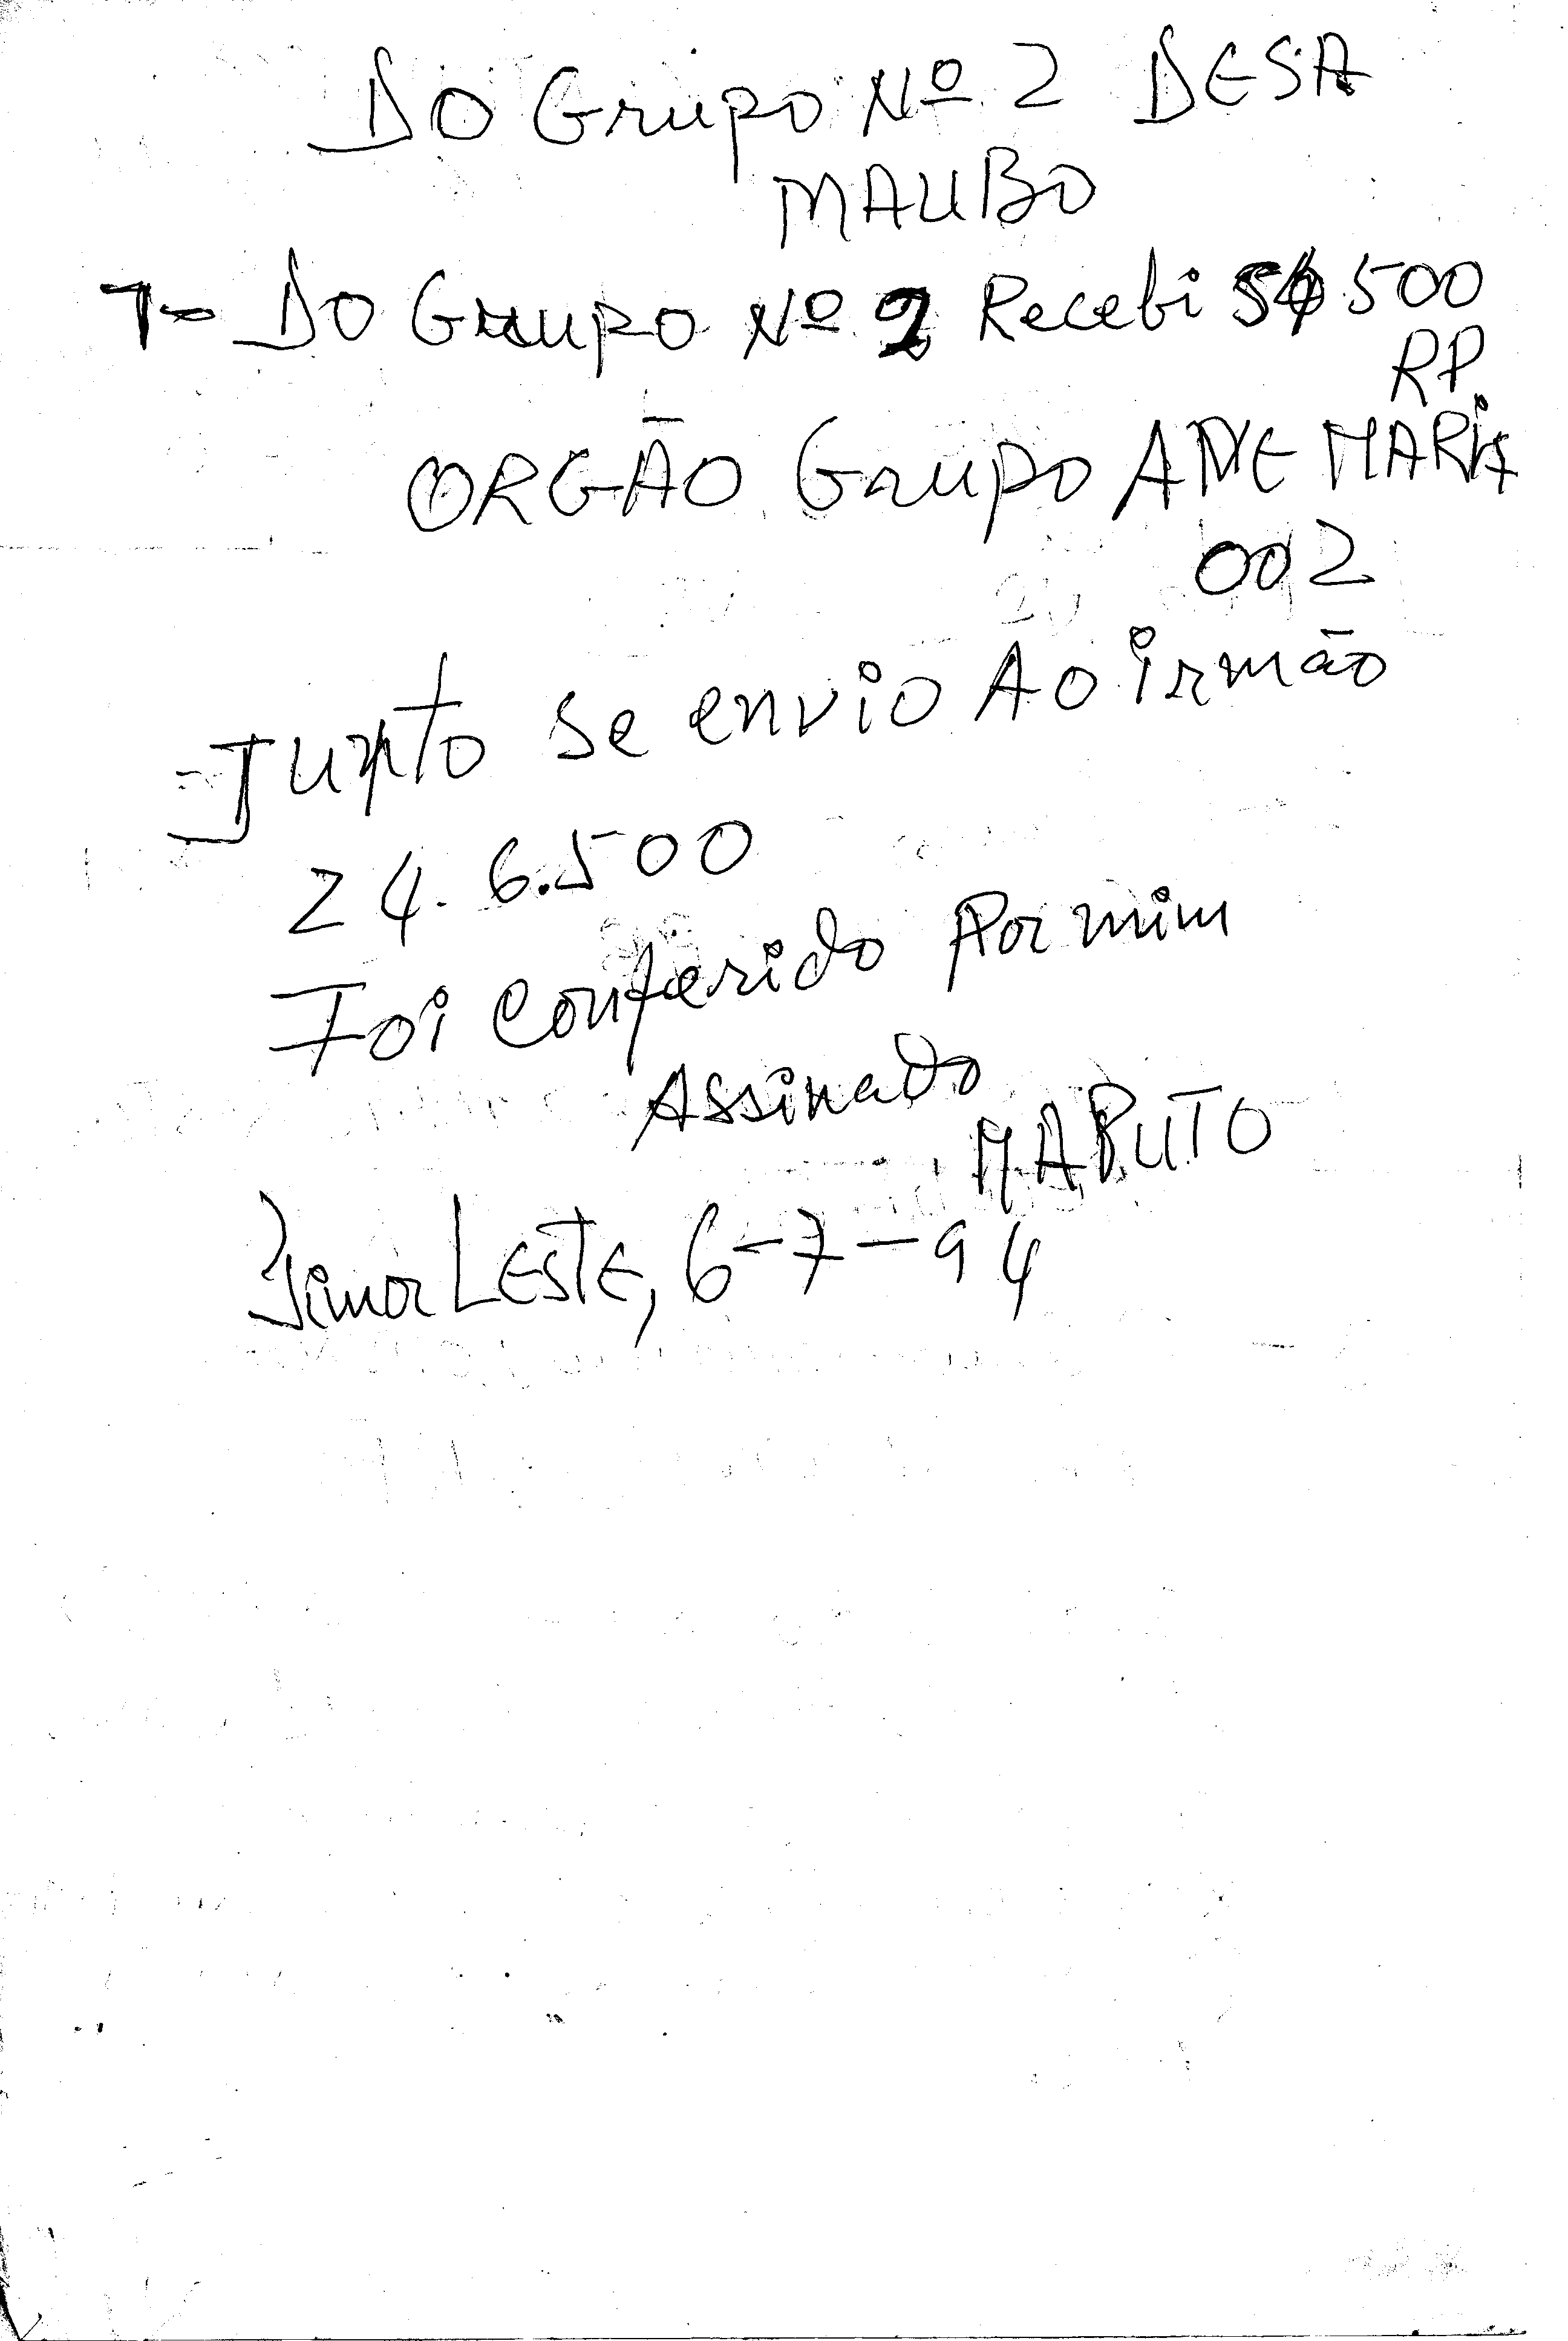 DO Grupo Nº 2 DESA
MAUBO
1- DO Grupo Nº 2 Recebi 500
RP.
ORGÃO Grupo AVE MARIA
002
Junto se envio Ao irmão
24.6.500
Foi conferido Por mim
Assinado
MAPUTO
Timor LESTE, 6-7-94